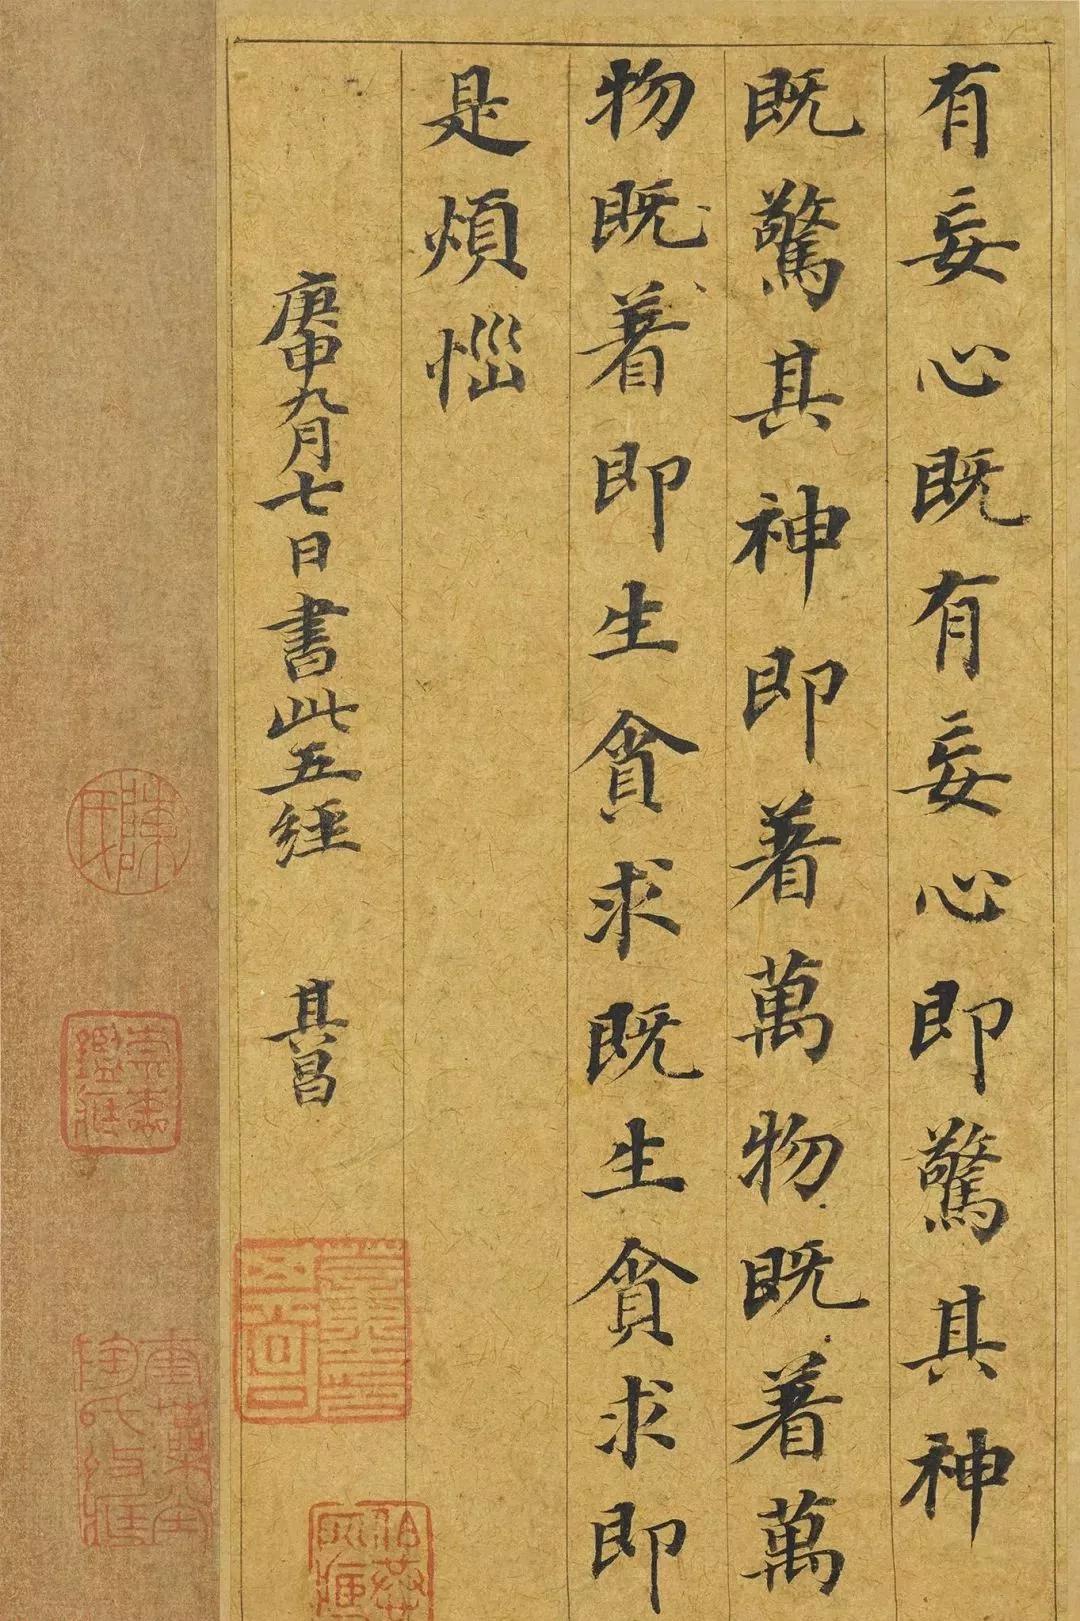 有妄心既有妄心即驚其神
既驚其神即著萬物既著萬
物既著即生貪求既生貪求即
是煩惱
庚申九月七日書此五經 其昌
陳氏